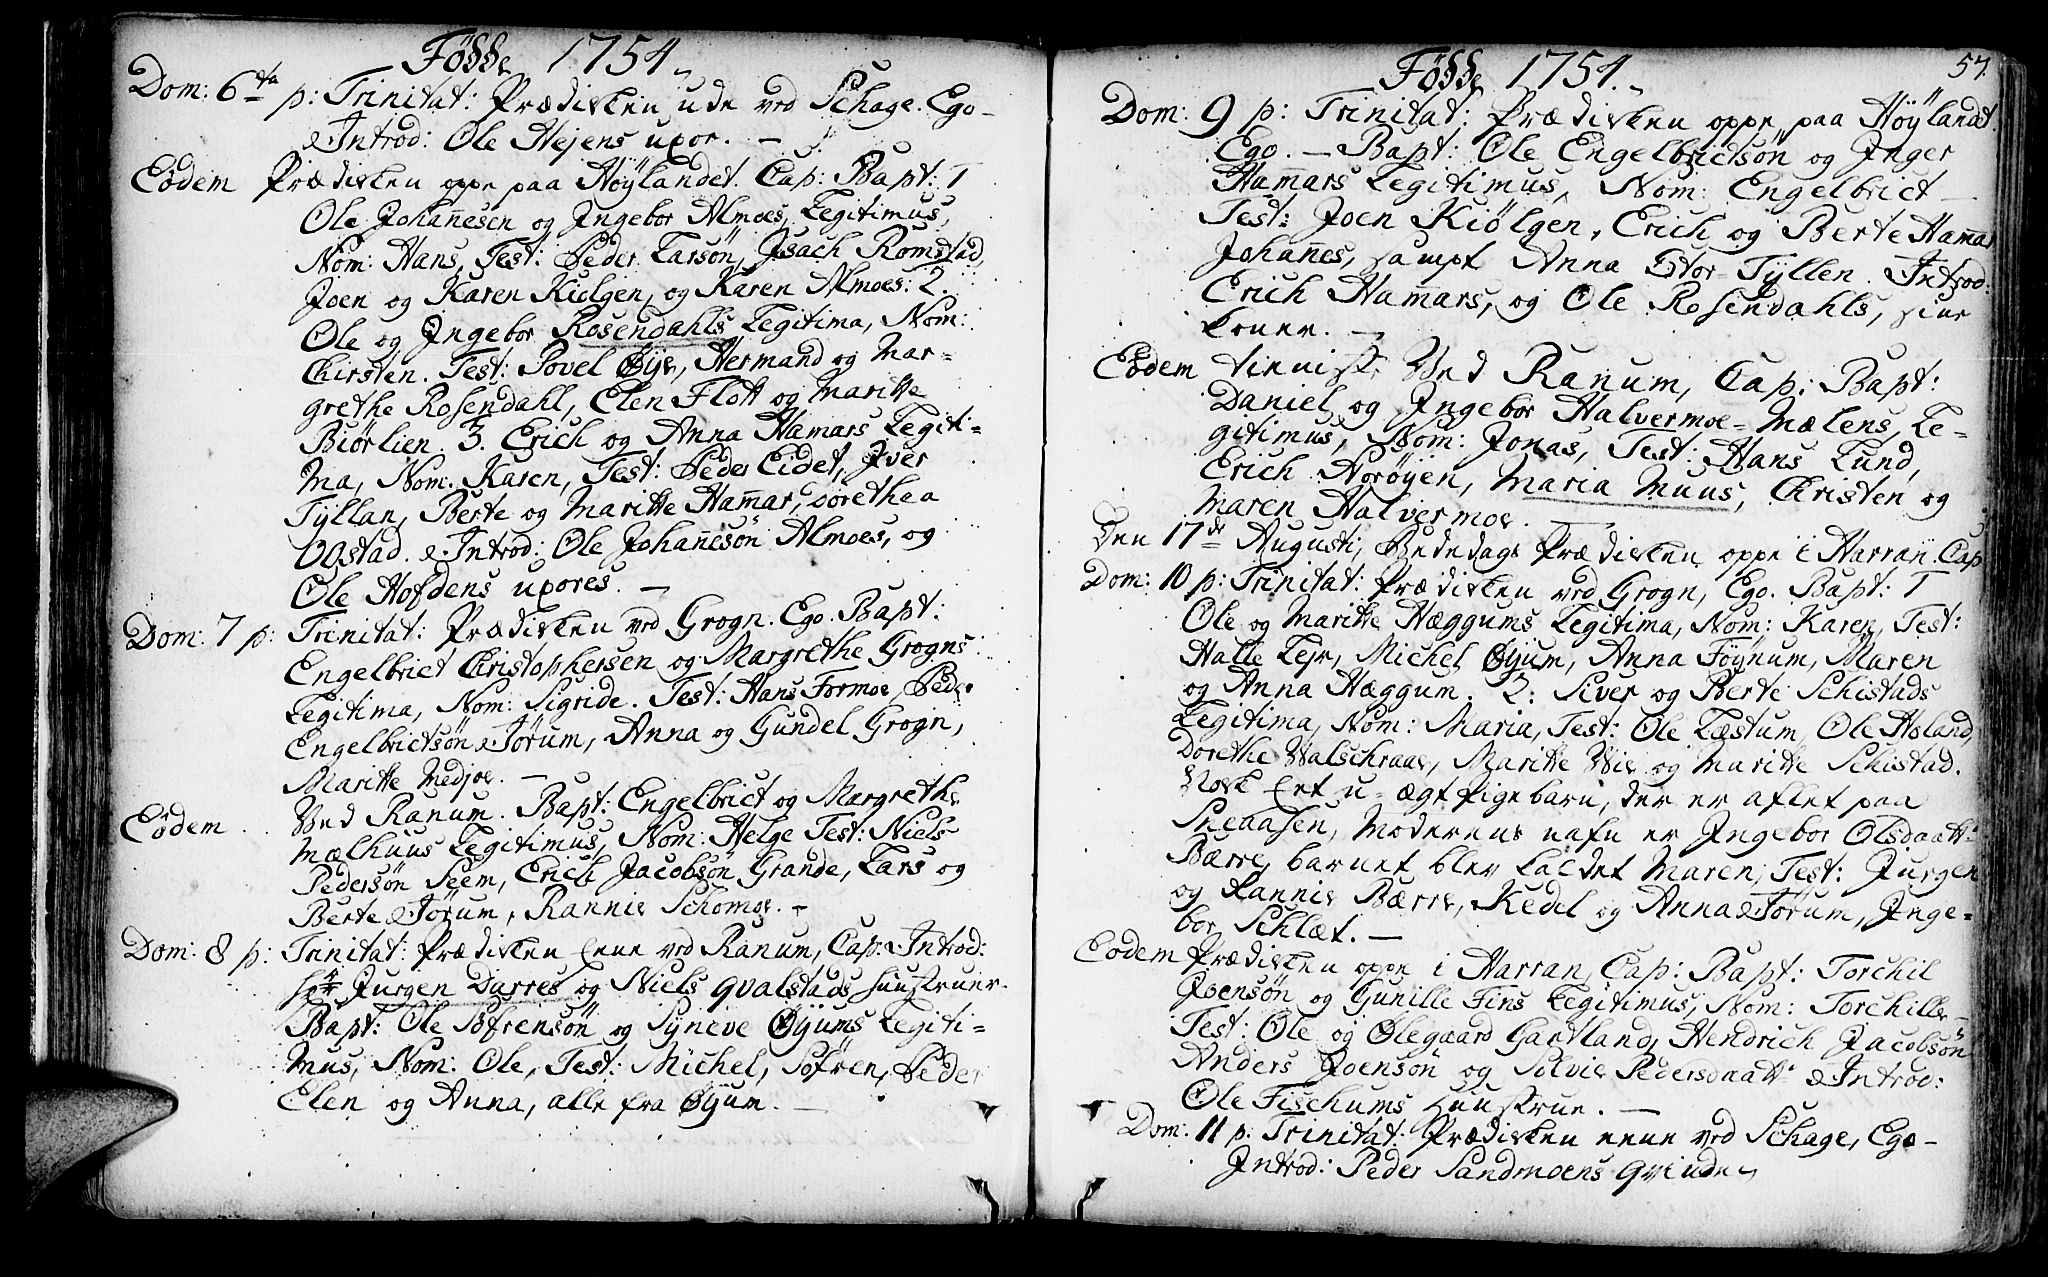 Födde 1754.
Dom: 6ta p: Trinitat: Prædicken ude ved Schage. Ego
Introd: Ole Hejens uxor. —
Eodem Prædicken oppe paa Höylandet. Cap: Bapt: 1
Ole Johañesen og Ingebor Almoes, Legitimus,
Nom: Hans, Test: Peder Larsön, Isach Romstad,
Joen og Karen Kiölgen, og Karen Almoes: 2.
Ole og Ingebor Rosendahls Legitima, Nom:
Chirsten. Test: Povel Øÿe, Hermand og Mar-
grethe Rosendahl, Elen Flott og Maritte
Biörlien. 3. Erich og Anna Hamars Legiti-
ma, Nom. Karen, Test: Peder Eidet, Iver
Tÿllan, Berte og Maritte Ham̄ar, Dorethea
Opstad. Introd: Ole Johañesön Almoes, og
Ole Hofdens uxores. —
Dom: 7 p: Trinitat: Prædicken ved Grogn. Ego. Bapt:
Engelbrict Christophersen og Margrethe Grogns
Legitima, Nom: Sigride. Test: Hans Formoe, Peder
Engelbrictsön Jörum, Anna og Gundel Grogn,
Maritte Medjoe. —
Eodem. Ved Ranum. Bapt: Engelbrict og Margrethe
Mælhuus Legitimus, Nom: Helge Test: Niels
Pedersön Seem, Erich Jacobsön Grande, Lars og
Berte Jörum, Rannie Schomoe. —
Dom: 8 p: Trinitat: Prædicken ene ved Ranum, Cap: Introd:
hr Jurgen Darres og Niels Qvalstads huustruer.
Bapt: Ole Sofrensön og Syneve Øÿums Legiti-
mus, Nom: Ole, Test: Michel, Sofren, Peder
Elen og Anna, alle fra Øÿum. —
Födde 1754. 57.
Dom: 9 p: Trinitat: Prædicken oppe paa Höÿlandet.
Ego. — Bapt: Ole Engelbrictsön og Inger
Ham̄ars Legitimus, Nom: Engelbrict
Test: Joen Kiölgen, Erich og Berte Ham̄ar
Johañes, sampt Anna Stor-Tÿllen. Introd:
Erich Ham̄ars, og Ole Rosendahls, sine
koner. —
Eodem Ved Ranum, Cap: Bapt:
Daniel og Ingebor Halvermoe-Mælens, Le-
gitimus, Nom: Jonas, Test: Hans Lund,
Erich Noröÿen, Maria Muus, Christen og
Maren Halvermoe. —
Den 17de Augusti, Bededags Prædicken oppe i Harran. Cap
Dom: 10 p: Trinitat: Prædicken ved Grogn, Ego. Bapt: 1
Ole og Maritte Hæggums Legitima, Nom: Karen, Test:
Halle Leje, Michel Øÿum, Anna Föÿnum, Maren
og Anna Hæggum. 2: Siver og Berte Schistads
Legitima, Nom: Maria, Test: Ole Læstum, Ole Holand,
Dorethe Walschraae, Maritte Wie og Maritte Schistad.
Nock Eet u-ægte pigebarn, der er aflet paa
Sneaasen, Moderens nafn er Ingebor Olsdaatter
Bærre, barnet blev kaldet Maren, Test: Jurgen
og Rannie Bærre, Kedel og Anna Jörum, Inge-
bor Schlæt. —
Eodem Prædicken oppe i Harran, Cap: Bapt: Torchil
Joensön og Gunille Fins Legitimus, Nom: Torchille
Test: Ole og Ølegaard Gartland, Hendrich Jacobsön
Anders Joensön og Silvie Pedersdaatter Introd:
Ole Fischums huustrue. —
Dom: 11 p: Trinitat: Prædicken ene ved Schage, Ego
Introd: Peder Sandmoens qvinde